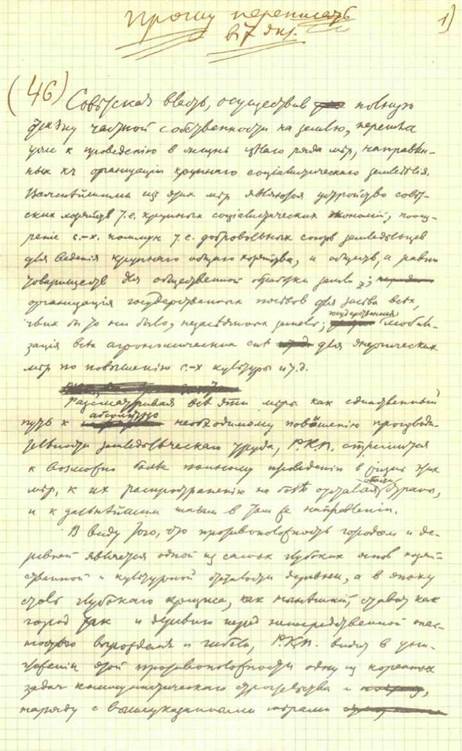 Прошу переписать
в 7 экз.
1)
(46) Советская власть, осуществив полную
отмену частной собственности на землю, перешла
уже к проведению в жизнь целого ряда мер, направлен-
ных к организации крупного социалистического земледелия.
Важнейшими из этих мер являются устройство совет-
ских хозяйств т. е. крупных социалистических экономий, поощ-
рение с.-х. коммун т. е. добровольных союзов земледельцев
для ведения крупного общего хозяйства, и обществ, а равно
товариществ для общественной обработки земли;
организация государственных посевов для засева всех,
чьих бы то ни было, незасеянных земель; государственная мобили-
зация всех агрономических сил для энергических
мер по повышению с.-х. культуры и т.д.
Рассматривая все эти меры как единственный
путь к абсолютно необходимому повышению производи-
тельности земледельческого труда, Р.К.П. стремится
к возможно более полному проведению в жизнь этих
мер, к их распространению на более отсталые области страны,
и к дальнейшим шагам в том же направлении.
В виду того, что противоположность городом и де-
ревней является одной из самых глубоких основ хозяй-
ственной и культурной отсталости деревни, а в эпоху
столь глубокого кризиса, как нынешний, ставит как
город так и деревню перед непосредственной опас-
ностью вырождения и гибели, Р.К.П. видит в уни-
чтожении этой противоположности одну из коренных
задач коммунистического строительства и
наряду с вышеуказанными мерами